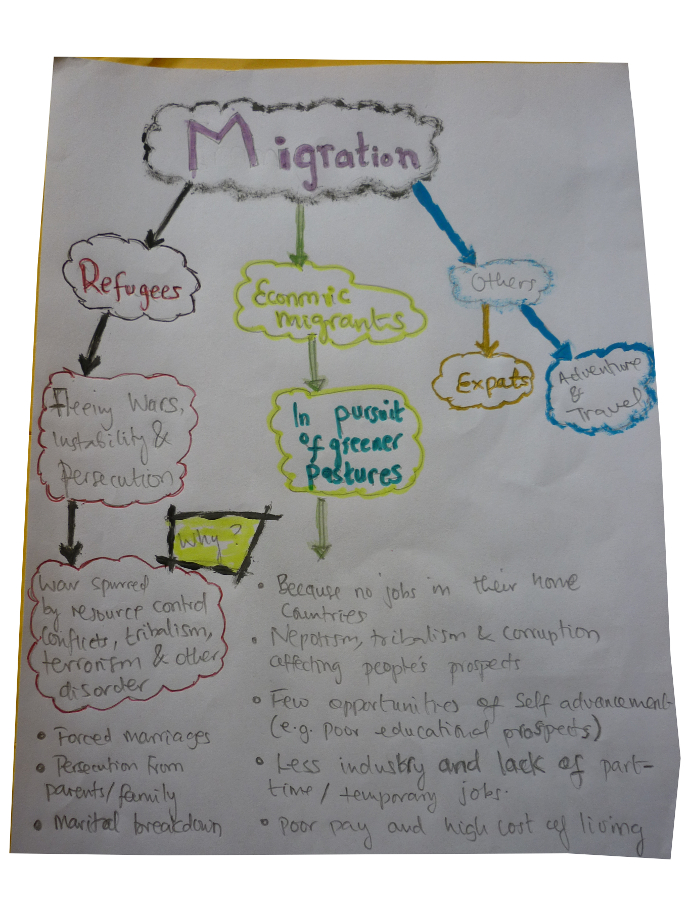 Migration
Refugees
Economic
migrants
Others
Expats
Adventure
&
Travel
Fleeing Wars,
instability &
Persecution
In pursuit
of greener
pastures
Why?
War spurred
by resource control
Conflicts, tribalism,
terrorism & other
disorder
• Forced marriages
• Persecution from
parents/family
• Marital breakdown
• Because no jobs in their home
Countries
• Nepotism, tribalism & corruption
affecting people's prospects
• Few opportunities of Self advancement
(e.g. poor educational prospects)
• Less industry and lack of part-
time/temporary jobs.
• Poor pay and high cost of living